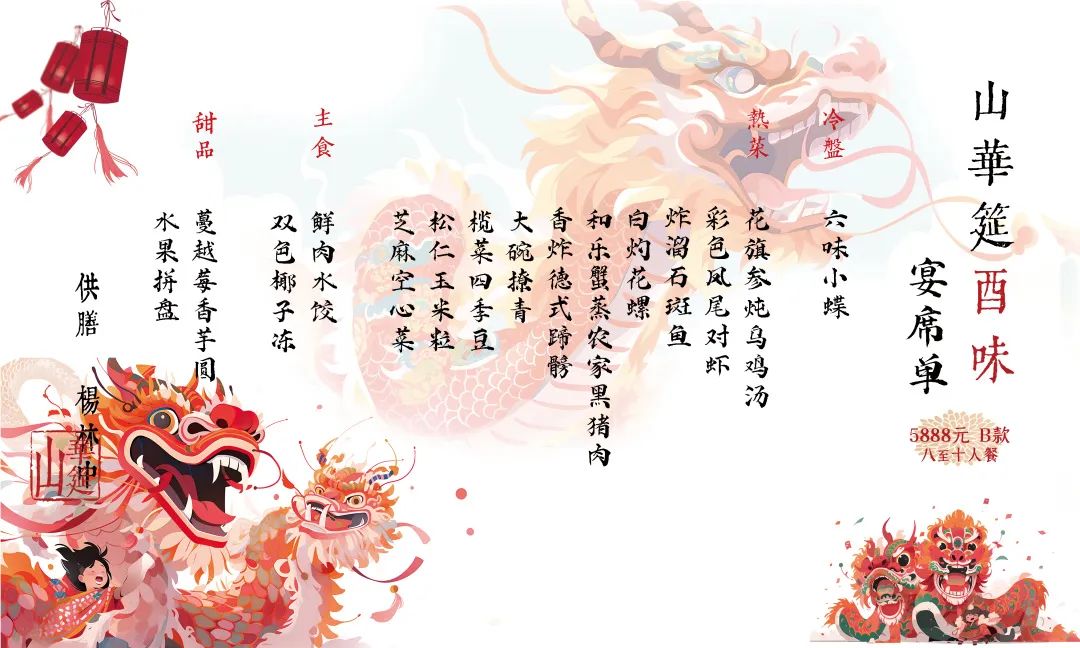 山華筵酉味
宴席单
5888元 B款
八至十人餐
冷盤
六味小蝶
熱菜
花旗参炖乌鸡汤
彩色凤尾对虾
炸溜石斑鱼
白灼花螺
和乐蟹蒸农家黑猪肉
香炸德式蹄髈
大碗撩青
榄菜四季豆
松仁玉米粒
芝麻空心菜
主食
鲜肉水饺
双色椰子冻
甜品
蔓越莓香芋圆
水果拼盘
供膳 楊林冲
山華筵